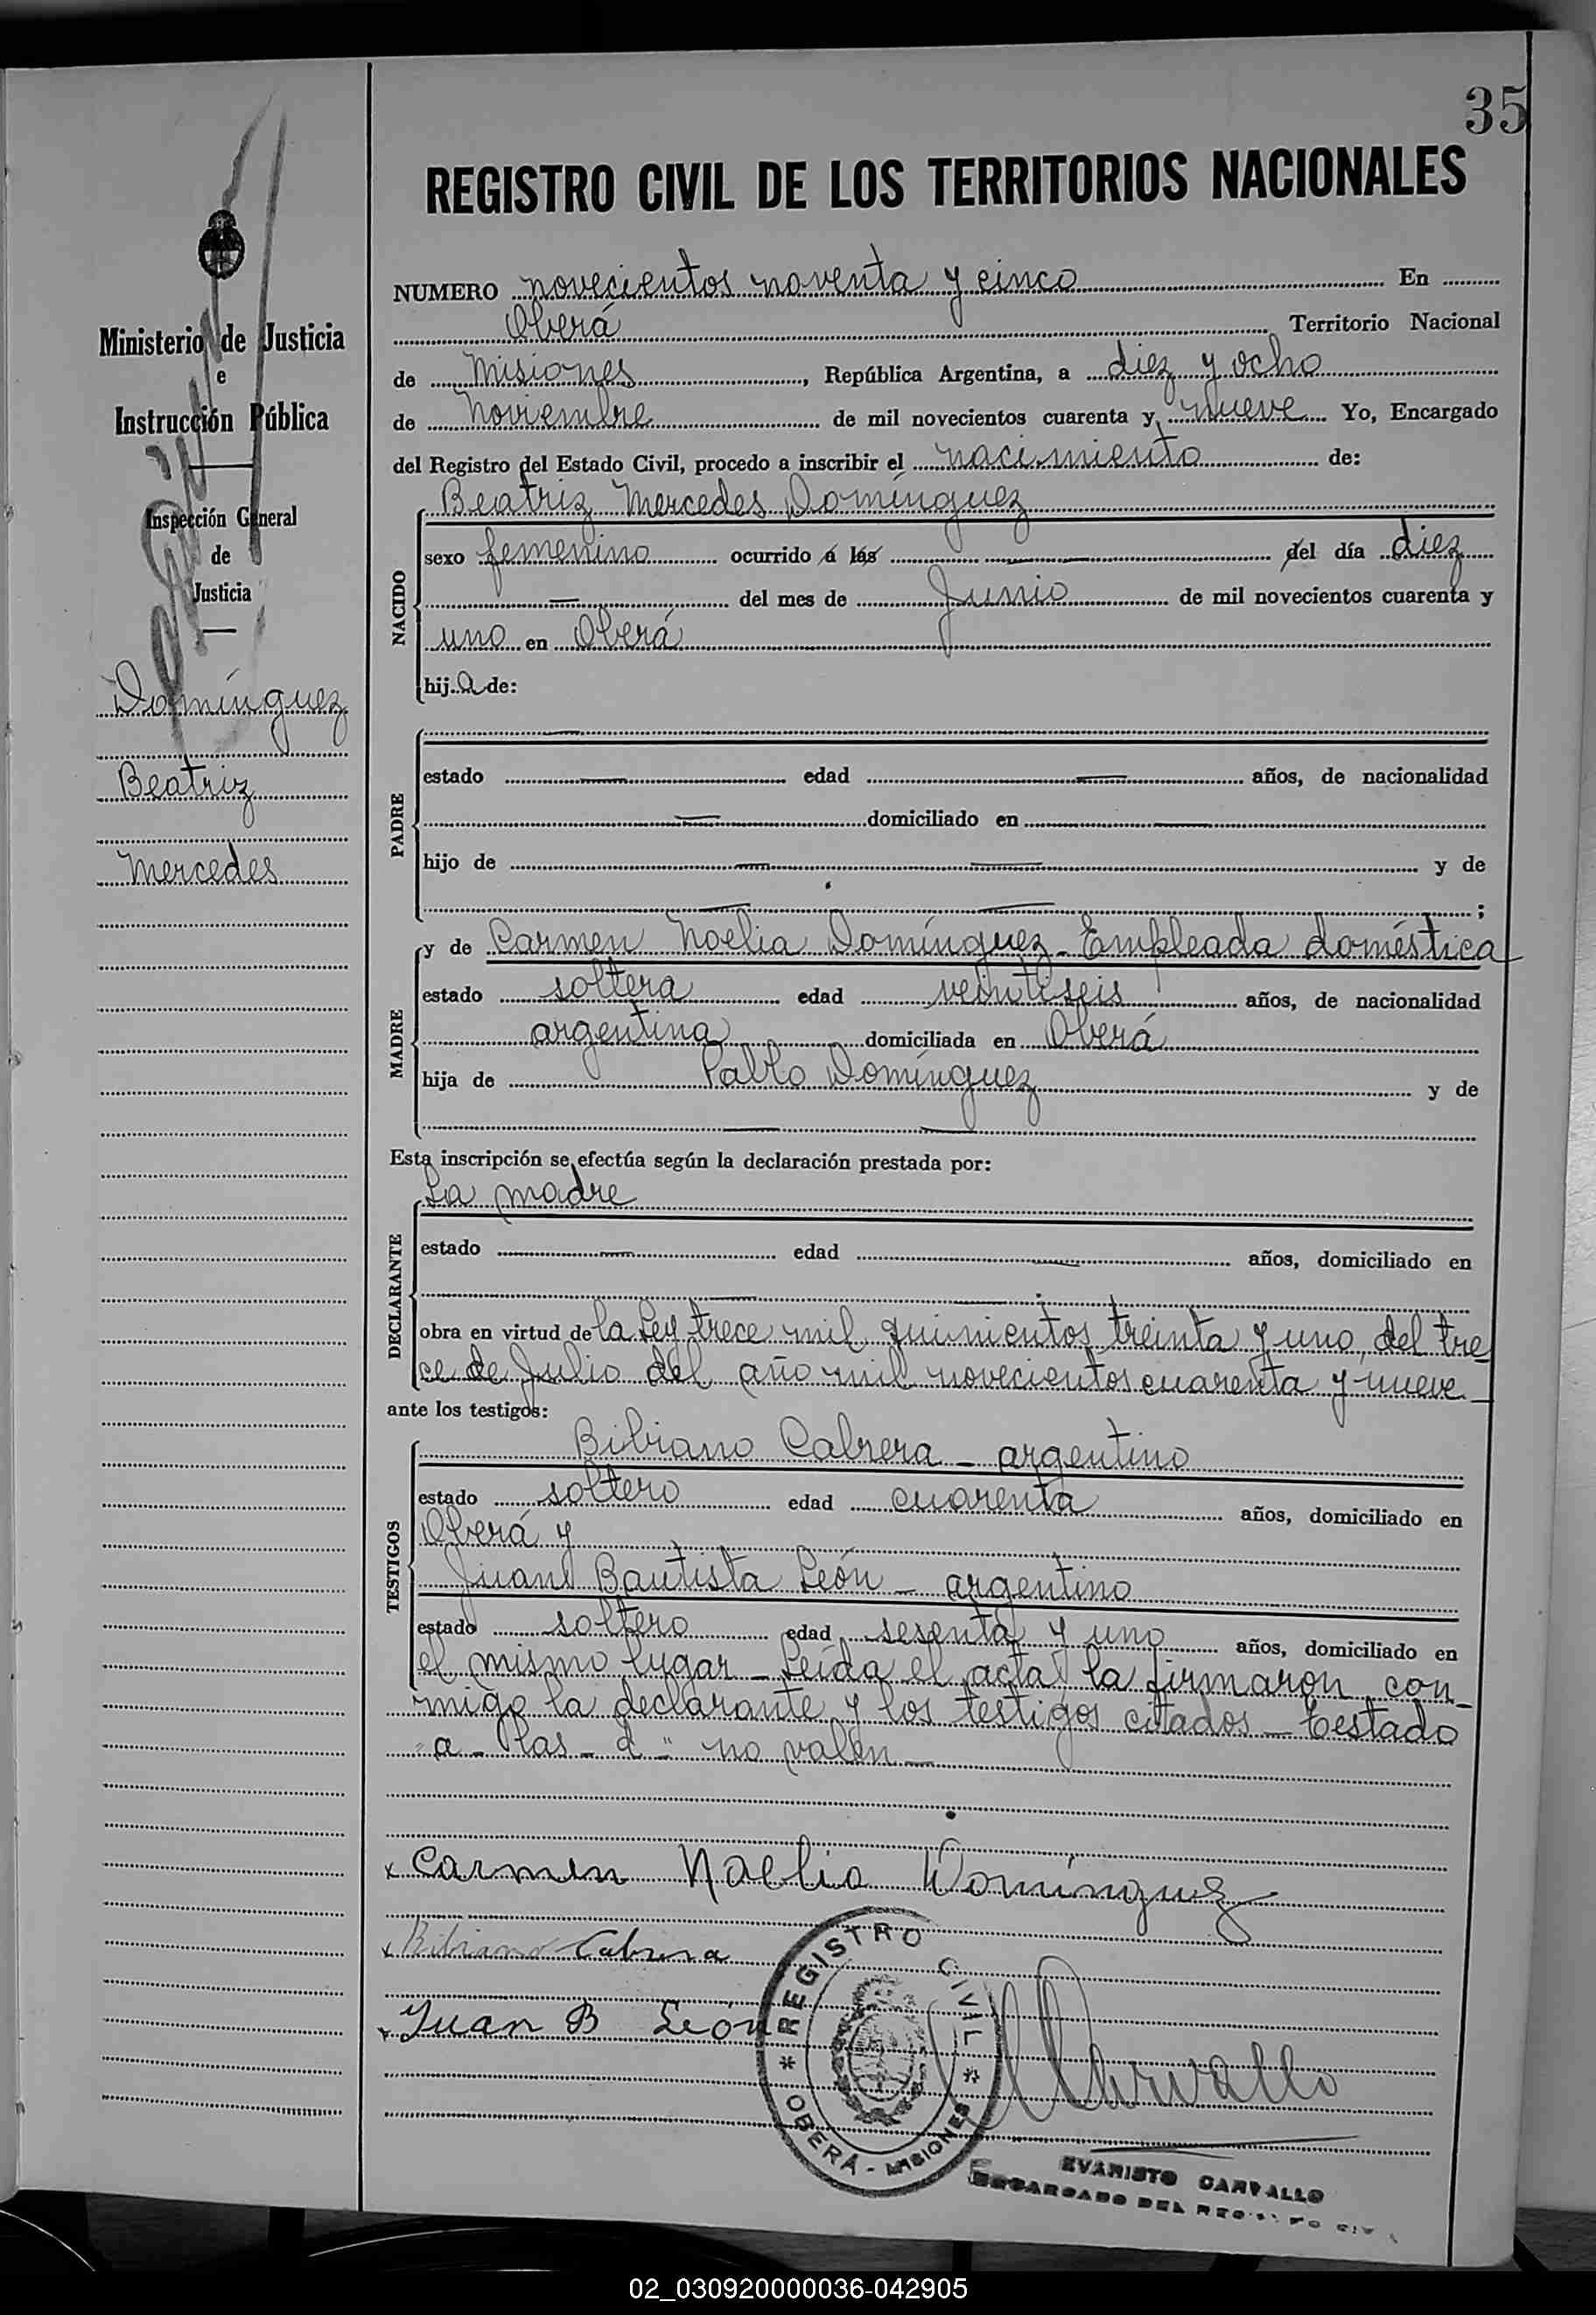 35
REGISTRO CIVIL DE LOS TERRITORIOS NACIONALES
Ministerio de Justicia
e
Instrucción Pública
Inspección General
de
Justicia
Domínguez
Beatriz
Mercedes
NUMERO novecientos noventa y cinco En
Oberá Territorio Nacional
de Misiones, República Argentina, a diez y ocho
de Noviembre de mil novecientos cuarenta y nueve Yo, Encargado
del Registro del Estado Civil, procedo a inscribir el nacimiento de:
NACIDO
Beatriz Mercedes Domínguez
sexo femenino ocurrido á las — del día diez
— del mes de Junio de mil novecientos cuarenta y
uno en Oberá
hija de:
PADRE
—
estado — edad — años, de nacionalidad
— domiciliado en —
hijo de — — y de
— — ;
MADRE
y de Carmen Noelia Domínguez - Empleada doméstica
estado soltera edad veintiseis años, de nacionalidad
argentina domiciliada en Oberá
hija de Pablo Domínguez y de
— —
Esta inscripción se efectúa según la declaración prestada por:
DECLARANTE
La madre
estado — edad — años, domiciliado en
— —
obra en virtud de la Ley trece mil quinientos treinta y uno, del tre
ce de Julio del año mil novecientos cuarenta y nueve —
ante los testigos:
TESTIGOS
Bibiano Cabrera - argentino
estado soltero edad cuarenta años, domiciliado en
Oberá y
Juan Bautista León - argentino
estado soltero edad sesenta y uno años, domiciliado en
el mismo lugar - Leída el acta la firmaron con-
migo la declarante y los testigos citados - Testado
"a - las - d" no valen —
x Carmen Naelia Domínguez
x Bibiano Cabrera
x Juan B León
REGISTRO CIVIL
* OBERÁ - MISIONES *
Carvallo
EVARISTO CARVALLO
ENCARGADO DEL REGISTRO CIVIL
02_030920000036-042905